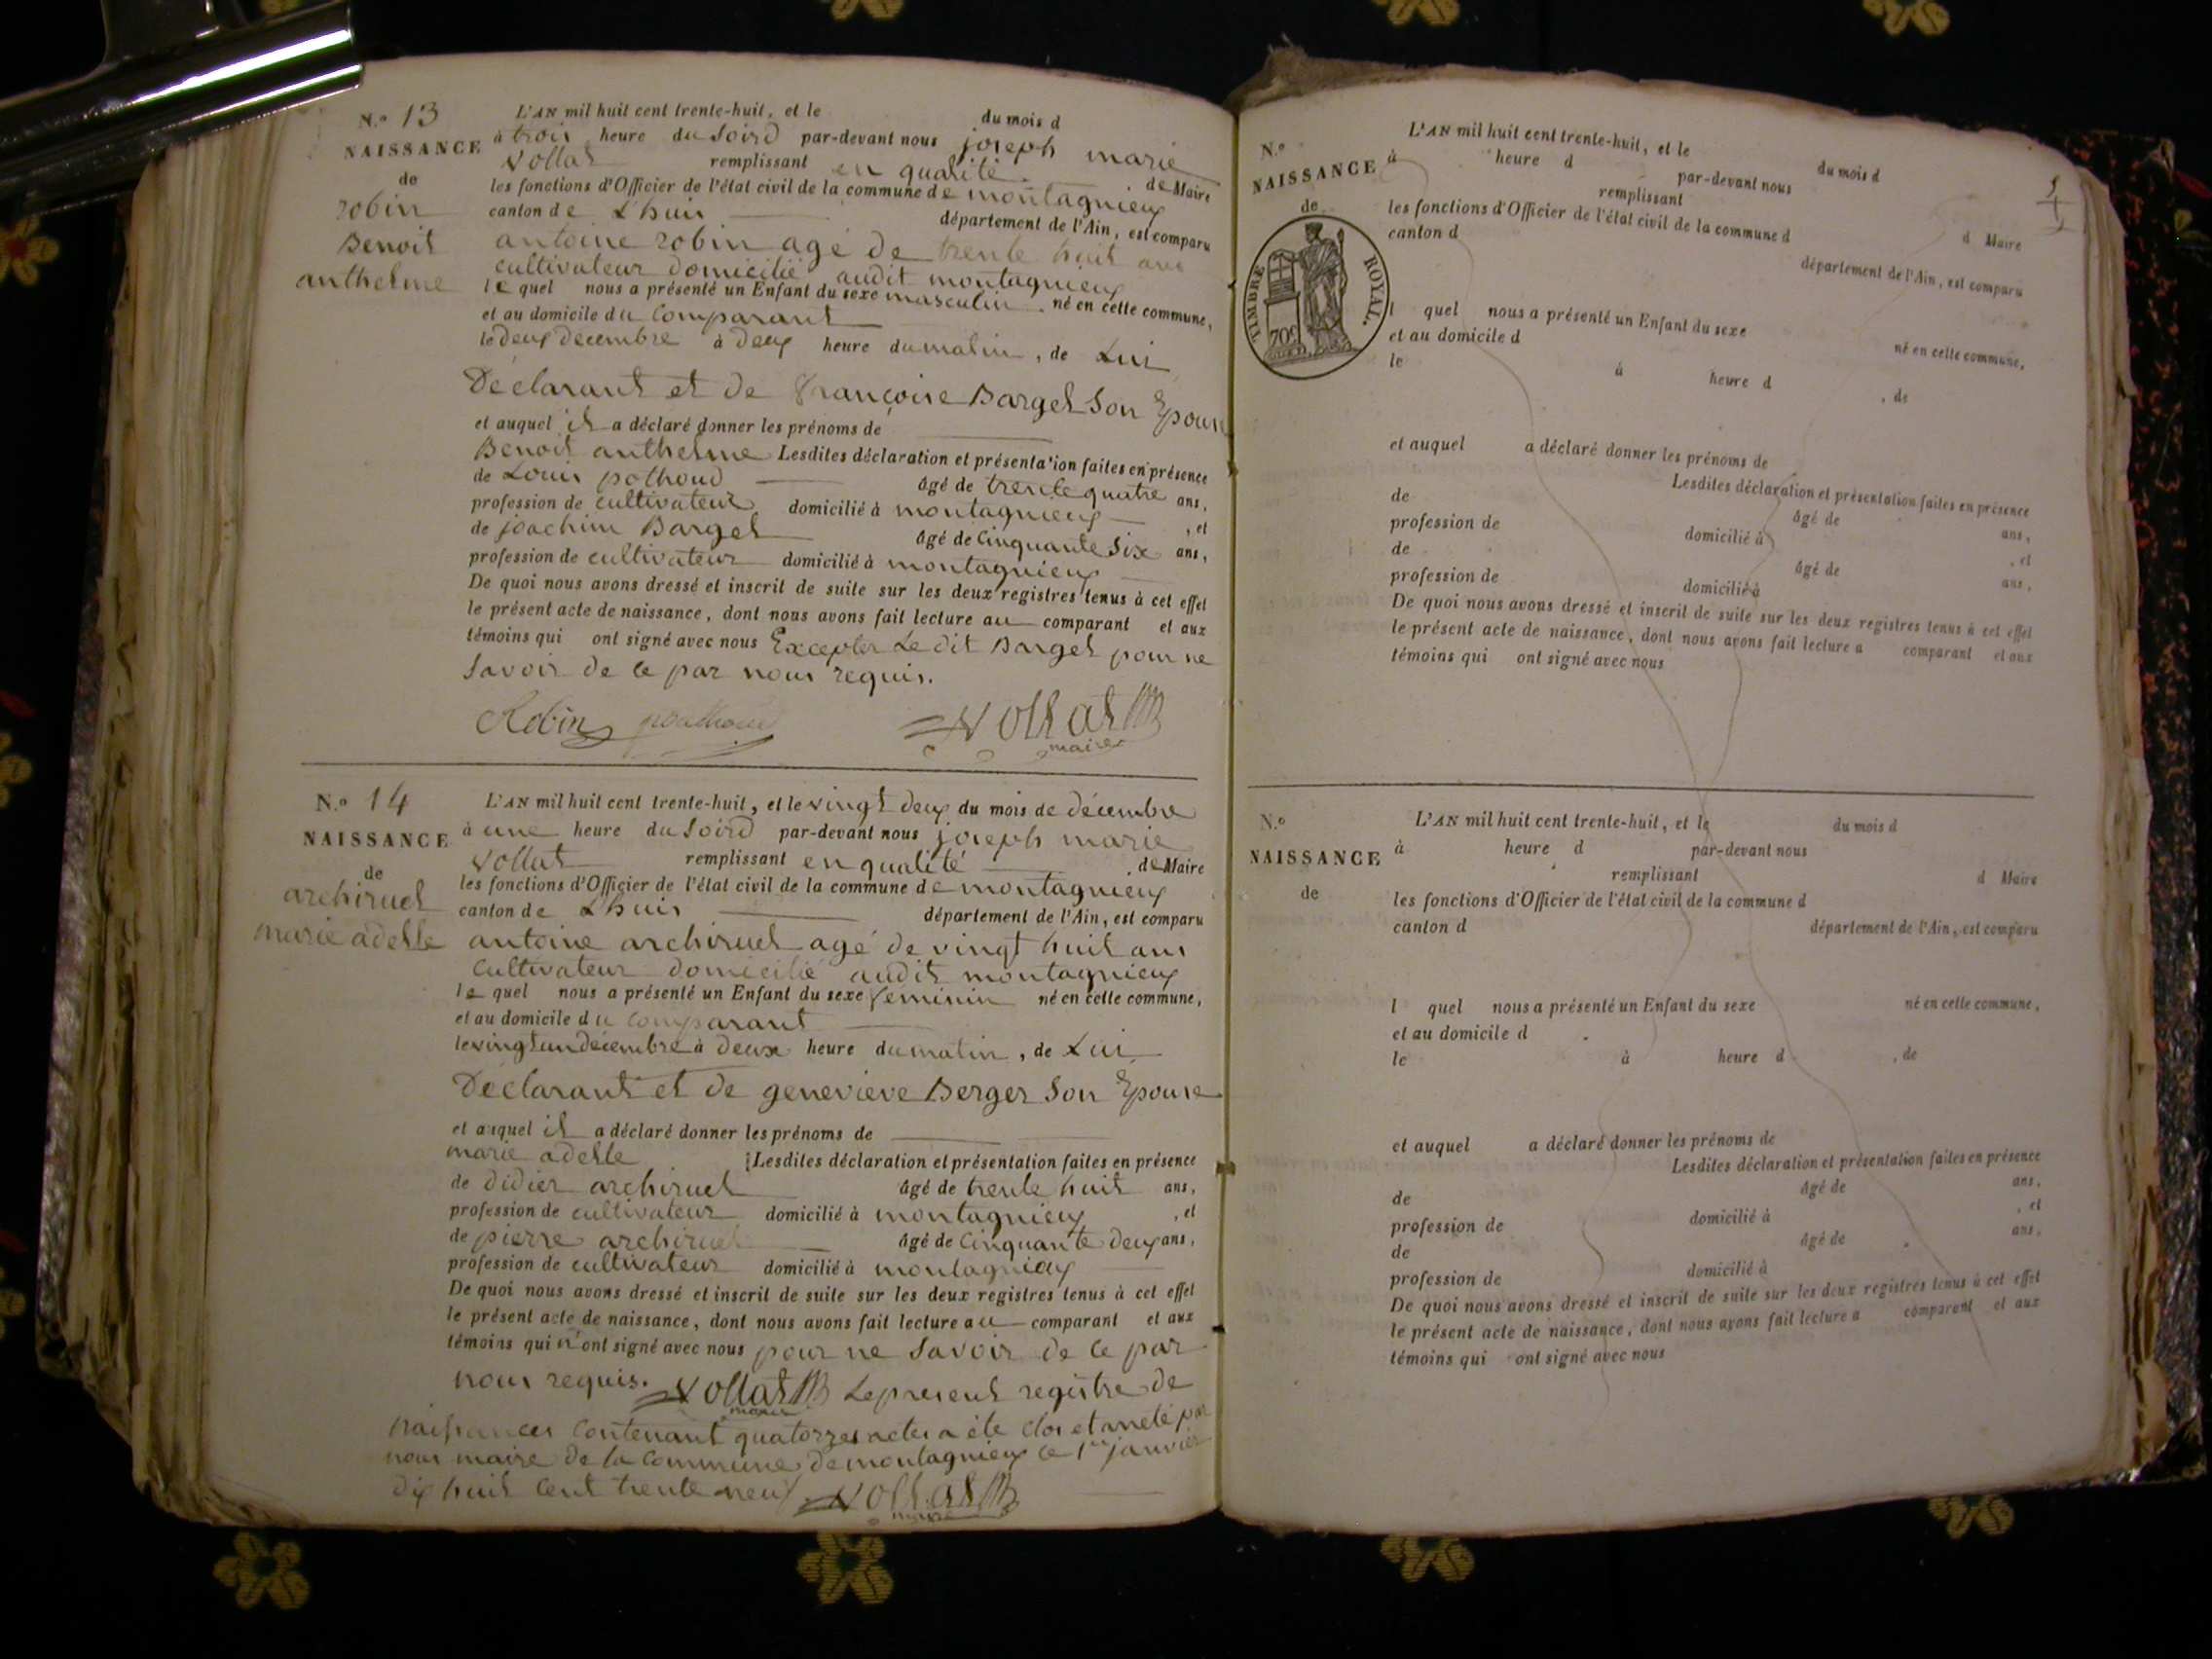 N.º 13
NAISSANCE
de
robin
Benoit
anthelme
L'AN mil huit cent trente-huit, et le du mois d
à trois heure du soird par-devant nous joseph marie
Vollat remplissant en qualité de Maire
les fonctions d'Officier de l'état civil de la commune de montagnieux
canton de L'huis département de l'Ain, est comparu
antoine robin agé de trente huit ans
cultivateur domicilié audit montagnieux
le quel nous a présenté un Enfant du sexe masculin né en cette commune,
et au domicile du Comparant
le deux decembre à deux heure du matin, de Lui
Déclarant et de françoise Barget Son Epouse
et auquel il a déclaré donner les prénoms de
Benoit anthelme Lesdites déclaration et présentation faites en présence
de Louis pothoud âgé de trente quatre ans,
profession de cultivateur domicilié à montagnieux , et
de joachim Barget âgé de Cinquante Six ans,
profession de cultivateur domicilié à montagnieux
De quoi nous avons dressé et inscrit de suite sur les deux registres tenus à cet effet
le présent acte de naissance, dont nous avons fait lecture au comparant et aux
témoins qui ont signé avec nous Excepter Le dit Barget pour ne
Savoir de ce par nous requis.
Robin Vollat
maire
N.º 14
NAISSANCE
de
archiruel
marie adelle
L'AN mil huit cent trente-huit, et le vingt deux du mois de décembre
à une heure du soird par-devant nous joseph marie
Vollat remplissant en qualité de Maire
les fonctions d'Officier de l'état civil de la commune de montagnieux
canton de L'huis département de l'Ain, est comparu
antoine archiruel agé de vingt huit ans
Cultivateur domicilié audit montagnieux
le quel nous a présenté un Enfant du sexe feminin né en cette commune,
et au domicile du Comparant
le vingt un décembre à deux heure du matin, de Lui
Déclarant et de genevieve Berger Son Epouse
et auquel il a déclaré donner les prénoms de
marie adelle Lesdites déclaration et présentation faites en présence
de didier archiruel âgé de trente huit ans,
profession de cultivateur domicilié à montagnieux , et
de pierre archiruel âgé de Cinquante deux ans,
profession de cultivateur domicilié à montagnieux
De quoi nous avons dressé et inscrit de suite sur les deux registres tenus à cet effet
le présent acte de naissance, dont nous avons fait lecture au comparant et aux
témoins qui n'ont signé avec nous pour ne Savoir de ce par
nous requis. Vollat Le present registre de
maire
naissances Contenant quatorzes actes a été clos et arreté par
nous maire de la Commune de montagnieux ce 1er janvier
dix huit Cent trente neuf. Vollat
maire
N.º
NAISSANCE
de
TIMBRE ROYAL.
70c
L'AN mil huit cent trente-huit, et le du mois d
à heure d par-devant nous
remplissant d Maire
les fonctions d'Officier de l'état civil de la commune d
canton d département de l'Ain, est comparu
l quel nous a présenté un Enfant du sexe né en cette commune,
et au domicile d
le à heure d , de
et auquel a déclaré donner les prénoms de
Lesdites déclaration et présentation faites en présence
de âgé de ans,
profession de domicilié à , et
de âgé de ans,
profession de domicilié à
De quoi nous avons dressé et inscrit de suite sur les deux registres tenus à cet effet
le présent acte de naissance, dont nous avons fait lecture a comparant et aux
témoins qui ont signé avec nous
N.º
NAISSANCE
de
L'AN mil huit cent trente-huit, et le du mois d
à heure d par-devant nous
remplissant d Maire
les fonctions d'Officier de l'état civil de la commune d
canton d département de l'Ain, est comparu
l quel nous a présenté un Enfant du sexe né en cette commune,
et au domicile d
le à heure d , de
et auquel a déclaré donner les prénoms de
Lesdites déclaration et présentation faites en présence
de âgé de ans,
profession de domicilié à , et
de âgé de ans,
profession de domicilié à
De quoi nous avons dressé et inscrit de suite sur les deux registres tenus à cet effet
le présent acte de naissance, dont nous avons fait lecture a comparant et aux
témoins qui ont signé avec nous